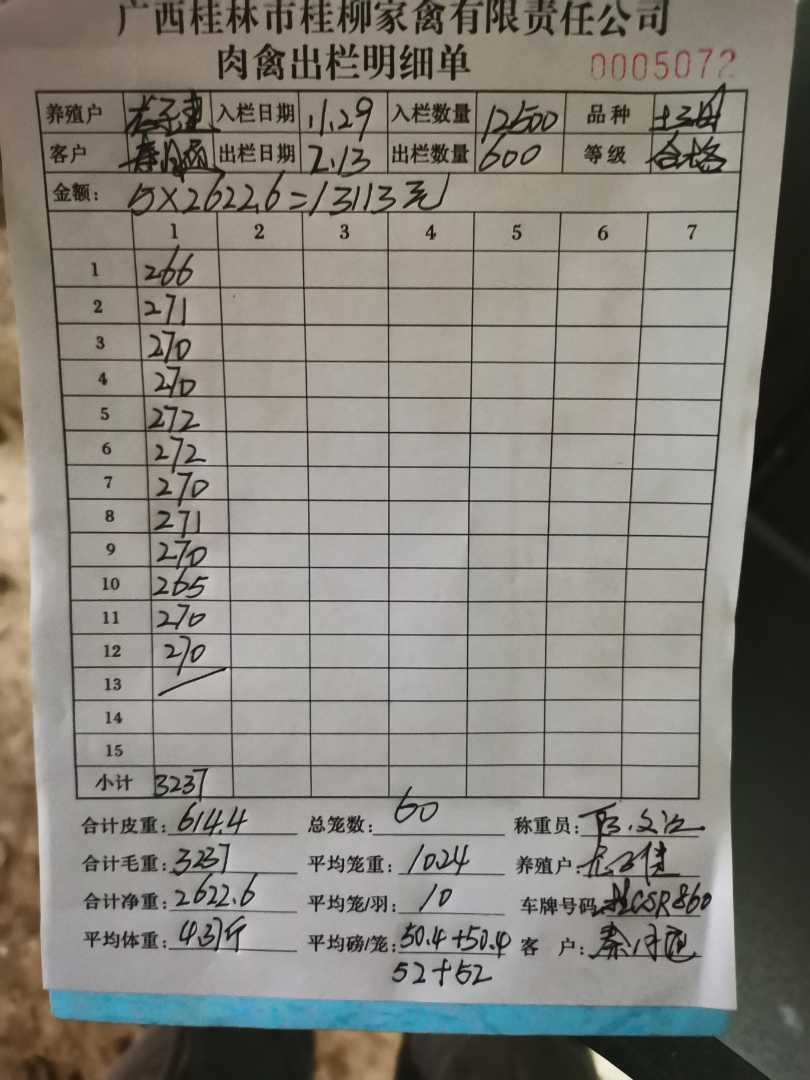 广西桂林市桂柳家禽有限责任公司
肉禽出栏明细单 0005072
养殖户 入栏日期 11.29 入栏数量 12500 品种 土三
客户 秦月 出栏日期 2.13 出栏数量 600 等级 合格
金额: 5×2622.6=13113元
1 2 3 4 5 6 7
1 266
2 271
3 270
4 270
5 272
6 272
7 270
8 271
9 270
10 265
11 270
12 270
13
14
15
小计 3237
合计皮重: 614.4 总笼数: 60 称重员:
合计毛重: 3237 平均笼重: 10.24 养殖户:
合计净重: 2622.6 平均笼/羽: 10 车牌号码: 桂CSR860
平均体重: 4.37斤 平均磅/笼: 50.4+50.4 客 户: 秦月
52+52